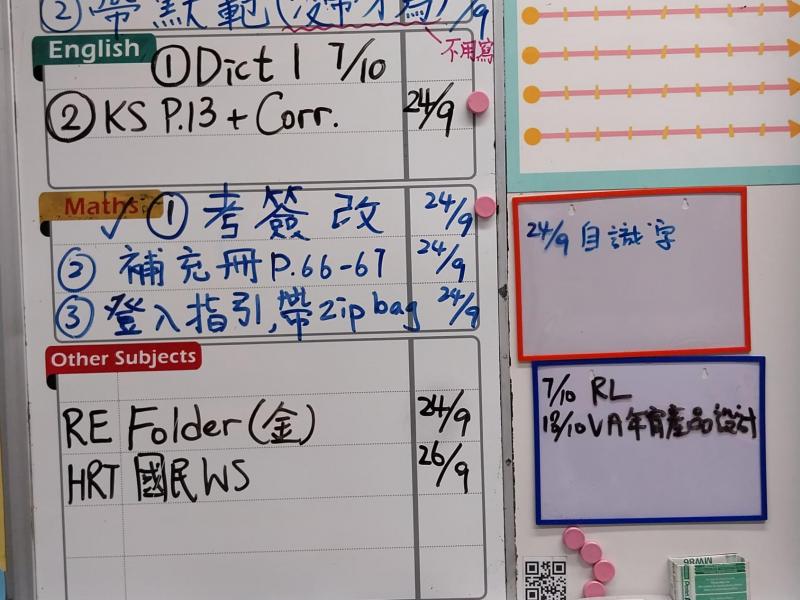 ② 帶默範(沒帶才寫) /9
不用寫
English
① Dict 1 7/10
② KS P.13 + Corr. 24/9
Maths
✓ ① 考簽改 24/9
② 補充冊 P.66-67 24/9
③ 登入指引, 帶 zip bag 24/9
Other Subjects
RE Folder (金) 24/9
HRT 國民 WS 26/9
24/9 自識字
7/10 RL
13/10 VA 年宵產品設計
MW86